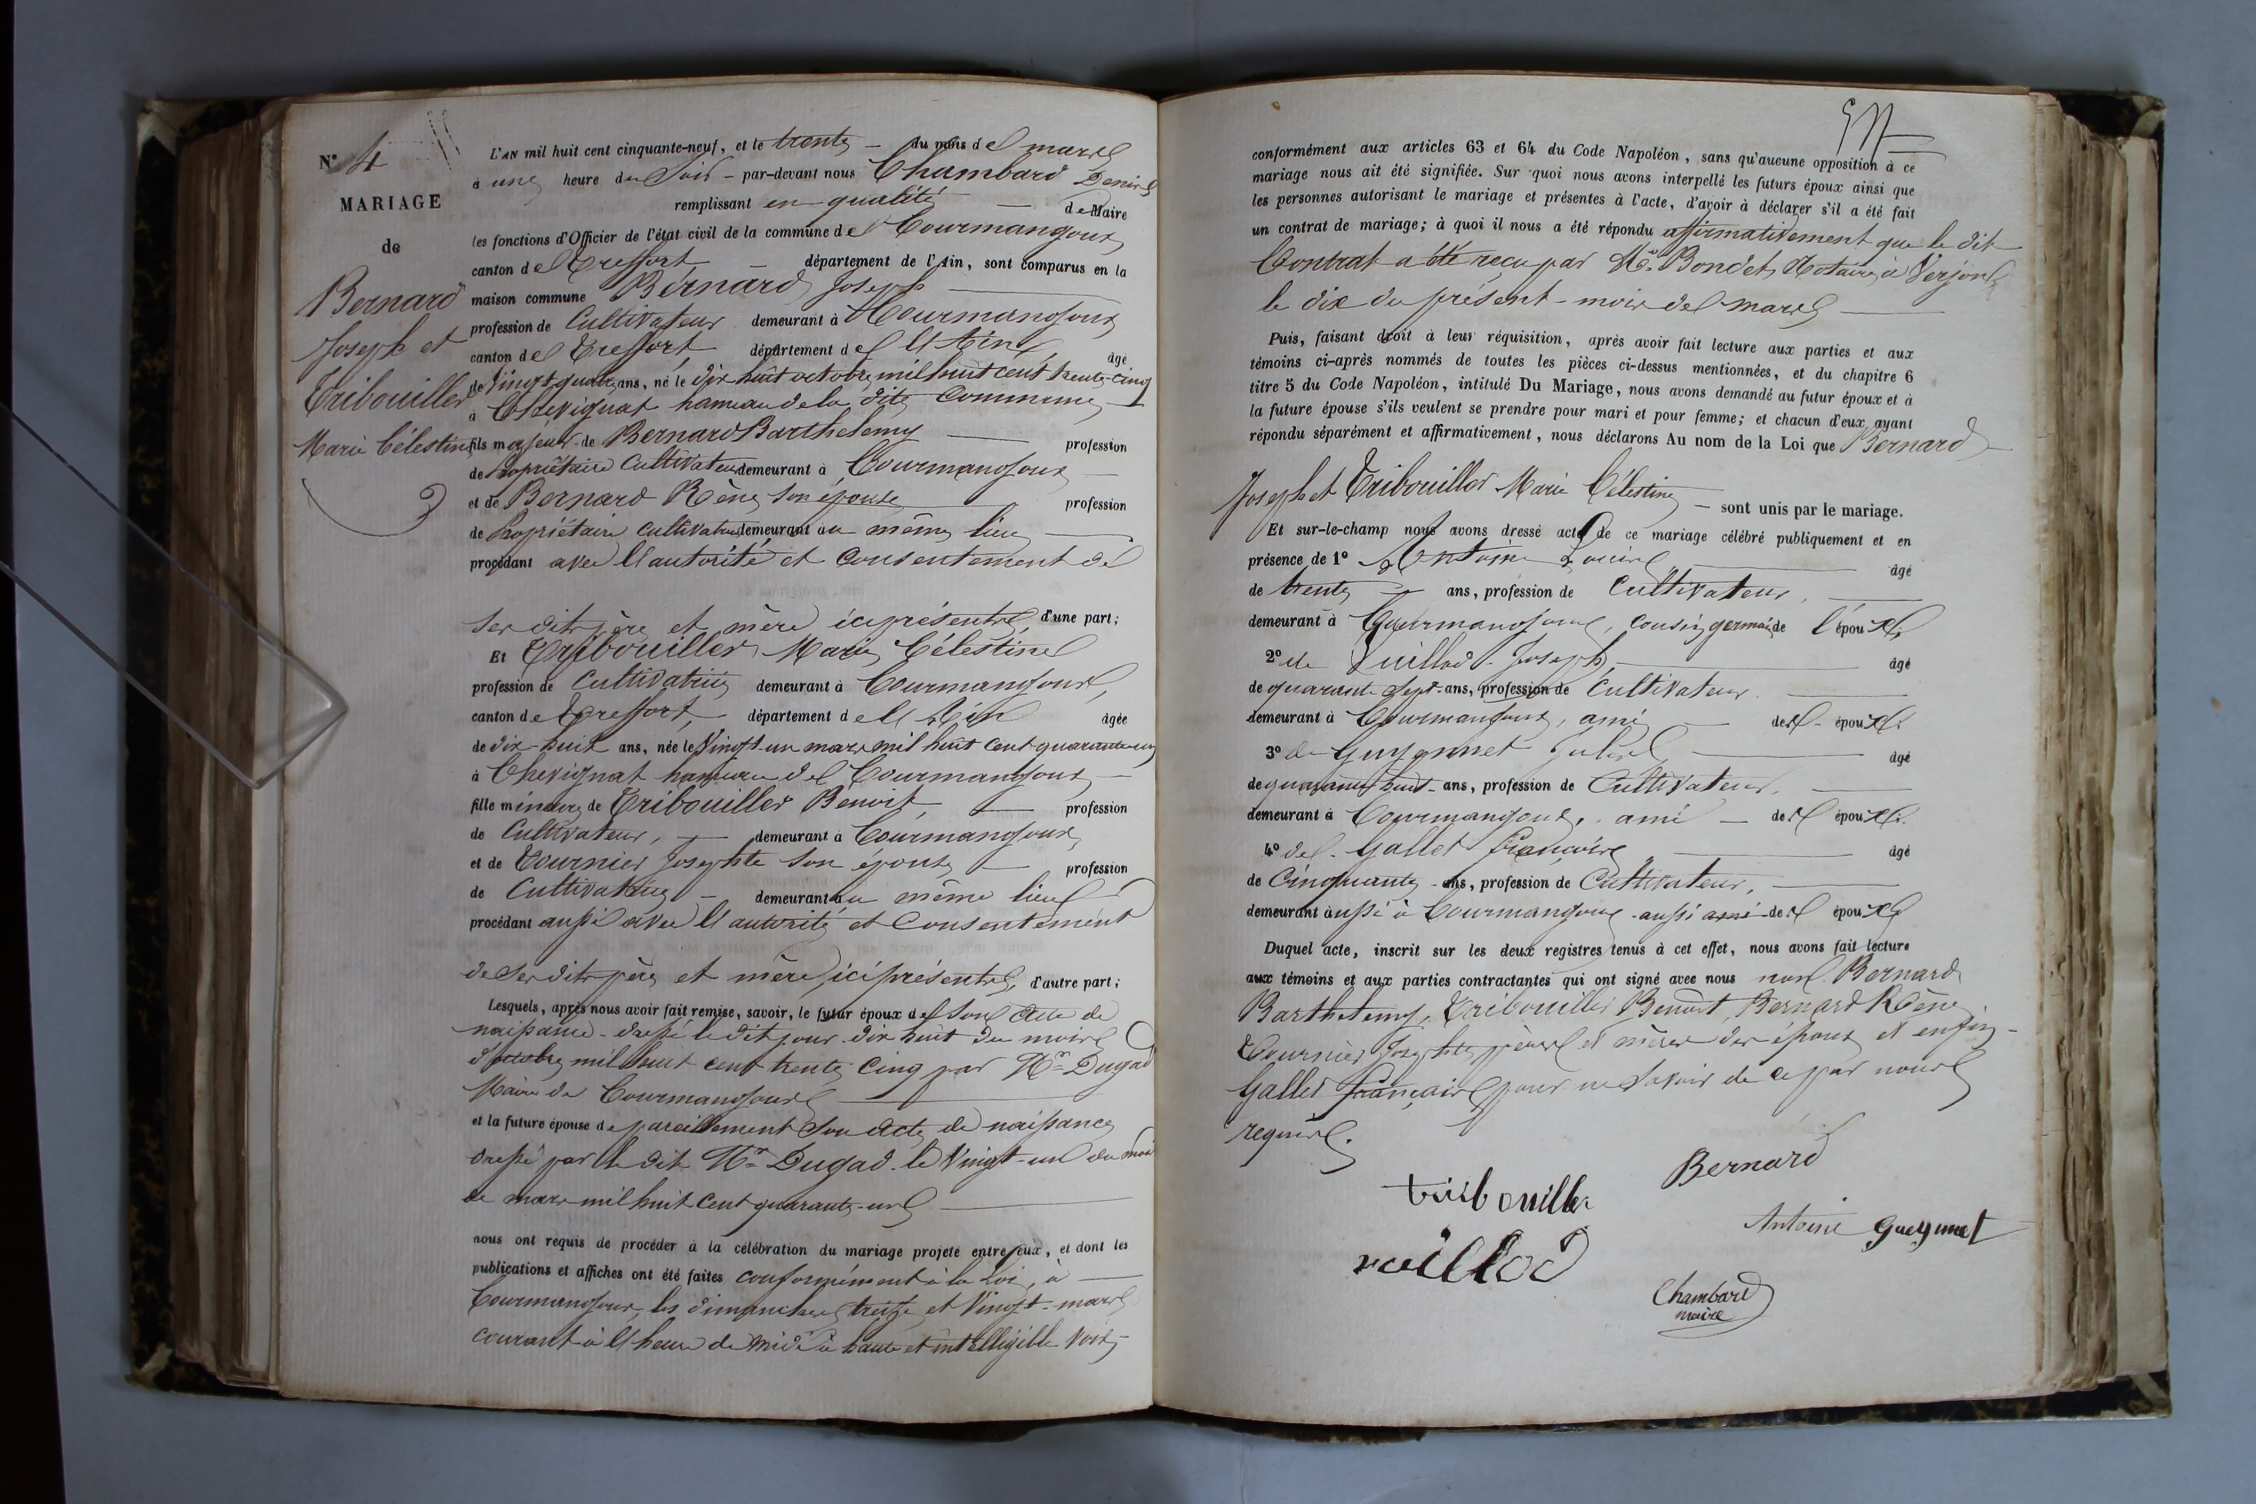 N° 4
MARIAGE
de
Bernard
Joseph et
Tribouiller
Marie Célestine
L'AN mil huit cent cinquante-neuf, et le trente du mois de mars
à une heure du Soir - par-devant nous Chambard Denis
remplissant en qualité de Maire
les fonctions d'Officier de l'état civil de la commune de Courmangoux
canton de Treffort département de l'Ain, sont comparus en la
maison commune Bernard Joseph
profession de Cultivateur demeurant à Courmangoux
canton de Treffort département de l'Ain âgé
de Vingt-quatre ans, né le dix huit octobre mil huit cent trente-cinq
à Chevignat hameau de la dite Commune
fils majeur de Bernard Barthelemy profession
de propriétaire Cultivateur demeurant à Courmangoux
et de Bernard Rène son épouse profession
de propriétaire cultivateur demeurant au même lieu
procédant avec l'autorité et Consentement de
ses dits père et mère ici présents, d'une part;
Et Tribouiller Marie Célestine
profession de Cultivatrice demeurant à Courmangoux,
canton de Treffort, département de l'Ain âgée
de dix-huit ans, née le Vingt-un mars mil huit cent quarante-un
à Chevignat hameau de Courmangoux
fille mineure de Tribouiller Benoit, profession
de Cultivateur, demeurant à Courmangoux
et de Tournier Josephte son épouse profession
de Cultivatrice demeurant au même lieu
procédant aussi avec l'autorité et Consentement
de ses dits père et mère, ici présents, d'autre part;
Lesquels, après nous avoir fait remise, savoir, le futur époux de son Acte de
naissance dressé le dit jour dix huit du mois
d'octobre mil huit cent trente cinq par Mr Dugad
Maire de Courmangoux
et la future épouse de pareillement son Acte de naissance
dressé par le dit Mr Dugad le Vingt-un du mois
de mars mil huit cent quarante-un
nous ont requis de procéder à la célébration du mariage projeté entre eux, et dont les
publications et affiches ont été faites conformément à la Loi, à
Courmangoux, les dimanches treize et Vingt-mars
courant à l'heure de midi à haute et intelligible Voix,
conformément aux articles 63 et 64 du Code Napoléon, sans qu'aucune opposition à ce
mariage nous ait été signifiée. Sur quoi nous avons interpellé les futurs époux ainsi que
les personnes autorisant le mariage et présentes à l'acte, d'avoir à déclarer s'il a été fait
un contrat de mariage; à quoi il nous a été répondu affirmativement que le dit
Contrat a été reçu par Me Bondet, Notaire à Verjon
le dix du présent-mois de mars
Puis, faisant droit à leur réquisition, après avoir fait lecture aux parties et aux
témoins ci-après nommés de toutes les pièces ci-dessus mentionnées, et du chapitre 6
titre 5 du Code Napoléon, intitulé Du Mariage, nous avons demandé au futur époux et à
la future épouse s'ils veulent se prendre pour mari et pour femme; et chacun d'eux ayant
répondu séparément et affirmativement, nous déclarons Au nom de la Loi que Bernard
Joseph et Tribouiller Marie Célestine sont unis par le mariage.
Et sur-le-champ nous avons dressé acte de ce mariage célébré publiquement et en
présence de 1° Antoine âgé
de trente ans, profession de Cultivateur,
demeurant à Courmangoux, cousin germain de l'époux;
2° de Vuillod Joseph, âgé
de quarante sept-ans, profession de Cultivateur
demeurant à Courmangoux, ami de l'époux;
3° de Guygnnet âgé
de quarante huit-ans, profession de Cultivateur,
demeurant à Courmangoux, ami de l'époux;
4° de Gallet François âgé
de Cinquante ans, profession de Cultivateur,
demeurant aussi à Courmangoux aussi ami de l'époux
Duquel acte, inscrit sur les deux registres tenus à cet effet, nous avons fait lecture
aux témoins et aux parties contractantes qui ont signé avec nous non Bernard
Barthelemy, Tribouiller Benoit, Bernard Rène
Tournier Josephte pères et mères des époux et enfin
Gallet français pour ne savoir de ce par nous
requis.
Bernard
tribouiller
Antoine Gueynnet
vuillod
Chambard
maire